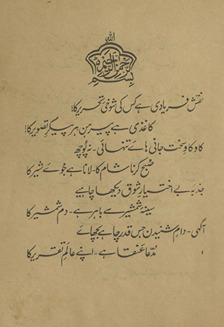 اللہ
بسم
نقش فریادی ہے کس کی شوخیِ تحریر کا!
کاغذی ہے پیرہن ہر پیکرِ تصویر کا!
کاوکاوِ سخت جانی ہائے تنہائی - نہ پوچھ
صبح کرنا شام کا - لانا ہے جوئے شیر کا
جذبۂ بے اختیارِ شوق دیکھا چاہیے
سینۂ شمشیر سے باہر ہے - دم شمشیر کا
آگہی - دامِ شنیدن جس قدر چاہے بچھائے
مدعا عنقا ہے - اپنے عالمِ تقریر کا